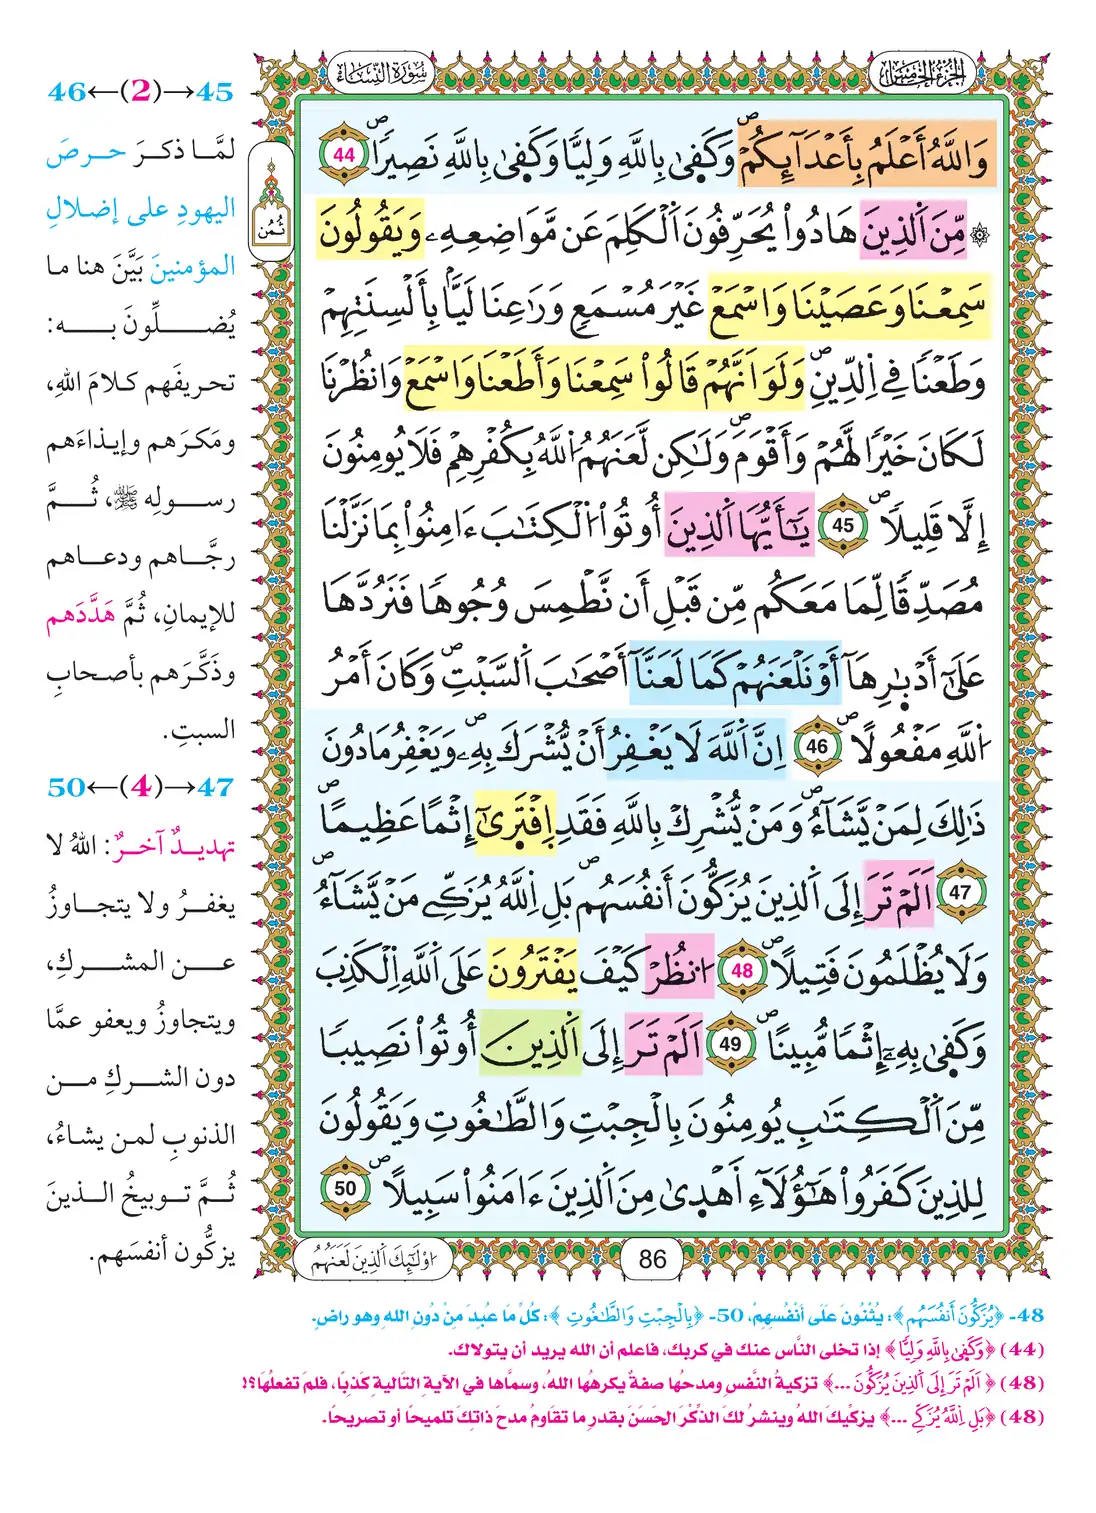 الجزء الخامس
سورة النساء
وَاللَّهُ أَعْلَمُ بِأَعْدَآئِكُمْ وَكَفَىٰ بِاللَّهِ وَلِيًّا وَكَفَىٰ بِاللَّهِ نَصِيرًا ۖ 44
۞ مِّنَ اَلذِينَ هَادُواْ يُحَرِّفُونَ اَلْكَلِمَ عَن مَّوَاضِعِهِۦ وَيَقُولُونَ
سَمِعْنَا وَعَصَيْنَا وَاسْمَعْ غَيْرَ مُسْمَعٍ وَرَٰعِنَا لَيًّاۢ بِأَلْسِنَتِهِمْ
وَطَعْنًا فِے اِلدِّينِ ۖ وَلَوَ اَنَّهُمْ قَالُواْ سَمِعْنَا وَأَطَعْنَا وَاسْمَعْ وَانظُرْنَا
لَكَانَ خَيْرًا لَّهُمْ وَأَقْوَمَ ۖ وَلَٰكِن لَّعَنَهُمُ اُللَّهُ بِكُفْرِهِمْ فَلَا يُومِنُونَ
إِلَّا قَلِيلًا ۖ 45 يَٰٓأَيُّهَا اَلذِينَ أُوتُواْ اُلْكِتَٰبَ ءَامِنُواْ بِمَا نَزَّلْنَا
مُصَدِّقًا لِّمَا مَعَكُم مِّن قَبْلِ أَن نَّطْمِسَ وُجُوهًا فَنَرُدَّهَا
عَلَىٰٓ أَدْبٰ۪رِهَآ أَوْ نَلْعَنَهُمْ كَمَا لَعَنَّآ أَصْحَٰبَ اَلسَّبْتِ ۖ وَكَانَ أَمْرُ
اُللَّهِ مَفْعُولًا ۖ 46 اِنَّ اَللَّهَ لَا يَغْفِرُ أَنْ يُّشْرَكَ بِهِۦ ۖ وَيَغْفِرُ مَا دُونَ
ذَٰلِكَ لِمَنْ يَّشَآءُ ۖ وَمَنْ يُّشْرِكْ بِاللَّهِ فَقَدِ اِفْتَرَىٰٓ إِثْمًا عَظِيمًا ۖ
47 اَلَمْ تَرَ إِلَى اَلذِينَ يُزَكُّونَ أَنفُسَهُم ۖ بَلِ اِللَّهُ يُزَكِّے مَنْ يَّشَآءُ ۖ
وَلَا يُظْلَمُونَ فَتِيلًا ۖ 48 اُنظُرْ كَيْفَ يَفْتَرُونَ عَلَى اَللَّهِ اِلْكَذِبَ
وَكَفَىٰ بِهِۦٓ إِثْمًا مُّبِينًا ۖ 49 اَلَمْ تَرَ إِلَى اَلذِينَ أُوتُواْ نَصِيبًا
مِّنَ اَلْكِتَٰبِ يُومِنُونَ بِالْجِبْتِ وَالطَّٰغُوتِ وَيَقُولُونَ
لِلذِينَ كَفَرُواْ هَٰٓؤُلَآءِ أَهْدَىٰ مِنَ اَلذِينَ ءَامَنُواْ سَبِيلًا ۖ 50
86
اُوْلَٰٓئِكَ اَلذِينَ لَعَنَهُمُ
ثُمُن
45→(2)←46
لمَّا ذكرَ حرصَ
اليهودِ على إضلالِ
المؤمنينَ بَيَّنَ هنا ما
يُضلِّونَ به:
تحريفَهم كلامَ اللهِ،
ومَكرَهم وإيذاءَهم
رسولِه ﷺ، ثُمَّ
رجَّاهم ودعاهم
للإيمانِ، ثُمَّ هَدَّدَهم
وذَكَّرَهم بأصحابِ
السبتِ.
47→(4)←50
تهديدٌ آخرٌ: اللهُ لا
يغفرُ ولا يتجاوزُ
عن المشركِ،
ويتجاوزُ ويعفو عمَّا
دون الشركِ من
الذنوبِ لمن يشاءُ،
ثُمَّ توبيخُ الذينَ
يزكُّون أنفسَهم.
48- ﴿يُزَكُّونَ أَنفُسَهُم﴾: يُثْنُونَ عَلَى أَنْفُسِهِمْ، 50- ﴿بِالْجِبْتِ وَالطَّٰغُوتِ﴾: كُلِّ مَا عُبِدَ مِنْ دُونِ اللهِ وهو راضٍ.
(44) ﴿وَكَفَىٰ بِاللَّهِ وَلِيًّا﴾ إذا تخلى النَّاس عنك في كربك، فاعلم أن الله يريد أن يتولاك.
(48) ﴿اَلَمْ تَرَ إِلَى اَلذِينَ يُزَكُّونَ ...﴾ تزكيةُ النَّفسِ ومدحُها صفةٌ يكرهُها اللهُ، وسمَّاها في الآيةِ التَّاليةِ كَذِبًا، فلمَ تفعلُهَا؟!
(48) ﴿بَلِ اِللَّهُ يُزَكِّے ...﴾ يزكِّيكَ اللهُ وينشرُ لكَ الذِّكْرَ الحَسَنَ بقدرِ ما تقاومُ مدحَ ذاتِكَ تلميحًا أو تصريحًا.